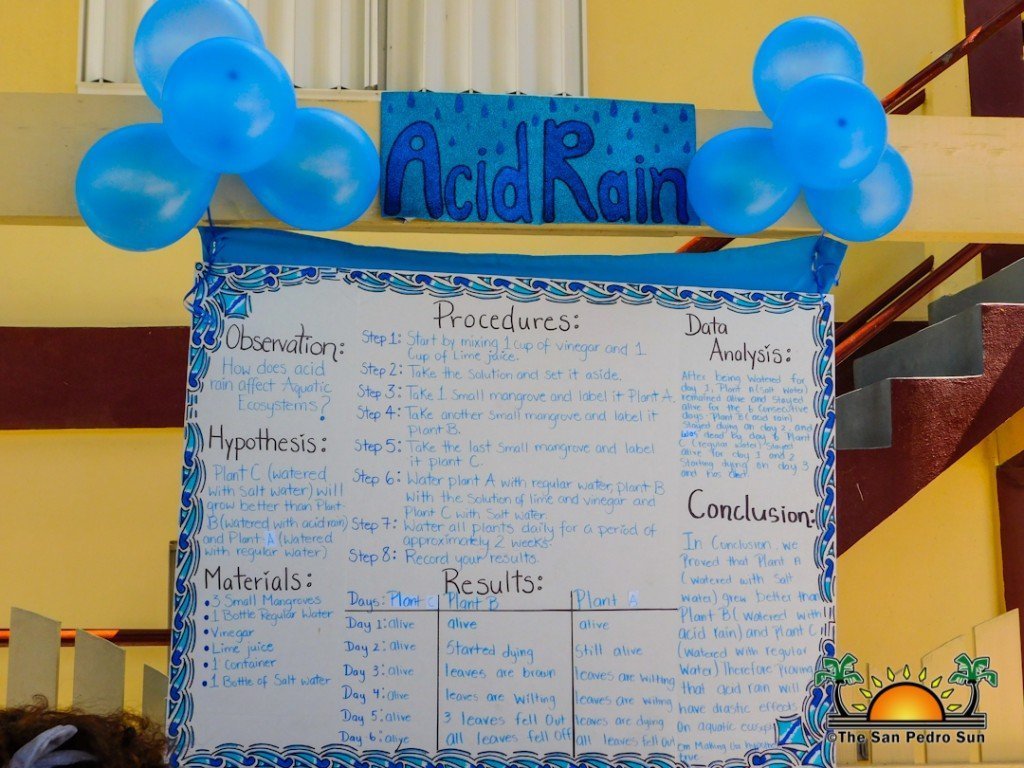 Acid Rain
Observation:
How does acid
rain affect Aquatic
Ecosystems?
Hypothesis:
Plant C (watered
with Salt water) will
grow better than Plant
B (watered with acid rain)
and Plant A (watered
with regular water)
Materials:
• 3 Small Mangroves
• 1 Bottle Regular Water
• Vinegar
• Lime juice
• 1 Container
• 1 Bottle of Salt water
Procedures:
Step 1: Start by mixing 1 cup of vinegar and 1
Cup of Lime juice.
Step 2: Take the Solution and set it aside.
Step 3: Take 1 Small mangrove and label it Plant A.
Step 4: Take another Small mangrove and label it
Plant B.
Step 5: Take the last Small mangrove and label
it plant C.
Step 6: Water plant A with regular water, plant B
with the Solution of lime and vinegar and
Plant C with Salt water.
Step 7: Water all plants daily for a period of
approximately 2 weeks.
Step 8: Record your results.
Results:
Days: Plant C Plant B Plant A
Day 1: alive alive alive
Day 2: alive Started dying Still alive
Day 3: alive leaves are brown leaves are wilting
Day 4: alive leaves are wilting leaves are wilting
Day 5: alive 3 leaves fell Out leaves are dying
Day 6: alive all leaves fell Off all leaves fell Out
Data
Analysis:
After being Watered for
day 1, Plant A (Salt Water)
remained alive and Stayed
alive for the 6 Consecutive
days. Plant B (acid rain)
Stayed dying on day 2, and
was dead by day 6 Plant
C (regular water) Stayed
alive for day 1 and 2
Starting dying on day 3
and has died.
Conclusion:
In Conclusion, we
Proved that Plant A
(watered with Salt
water) grew better than
Plant B (watered with
acid rain) and plant C
(watered with regular
Water) Therefore Proving
that acid rain will
have drastic effects
On aquatic
Making
true
©The San Pedro Sun